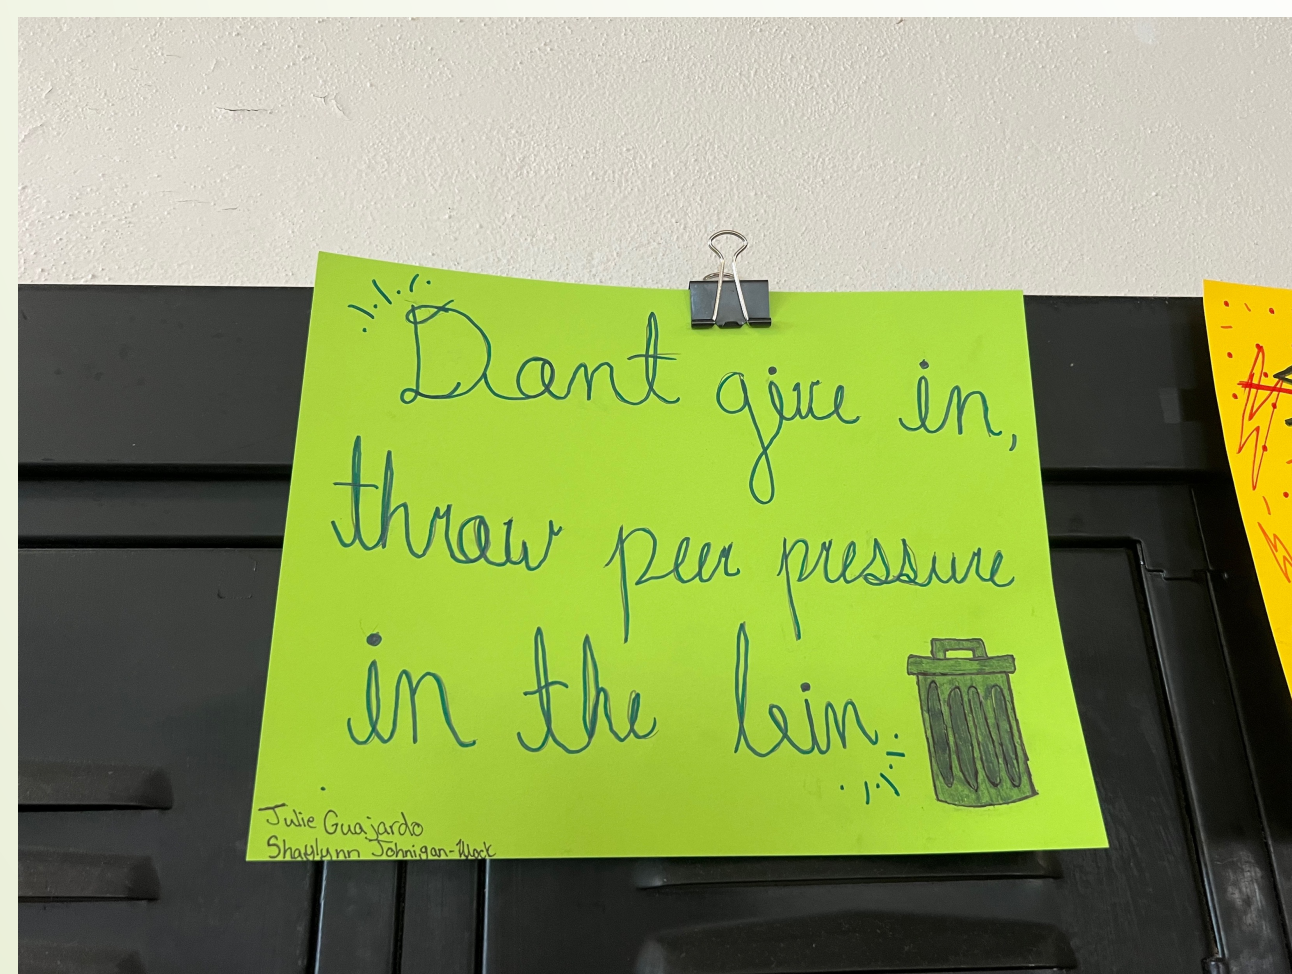 Dont give in,
throw peer pressure
in the bin.
Julie Guajardo
Shaylynn Johnigan-